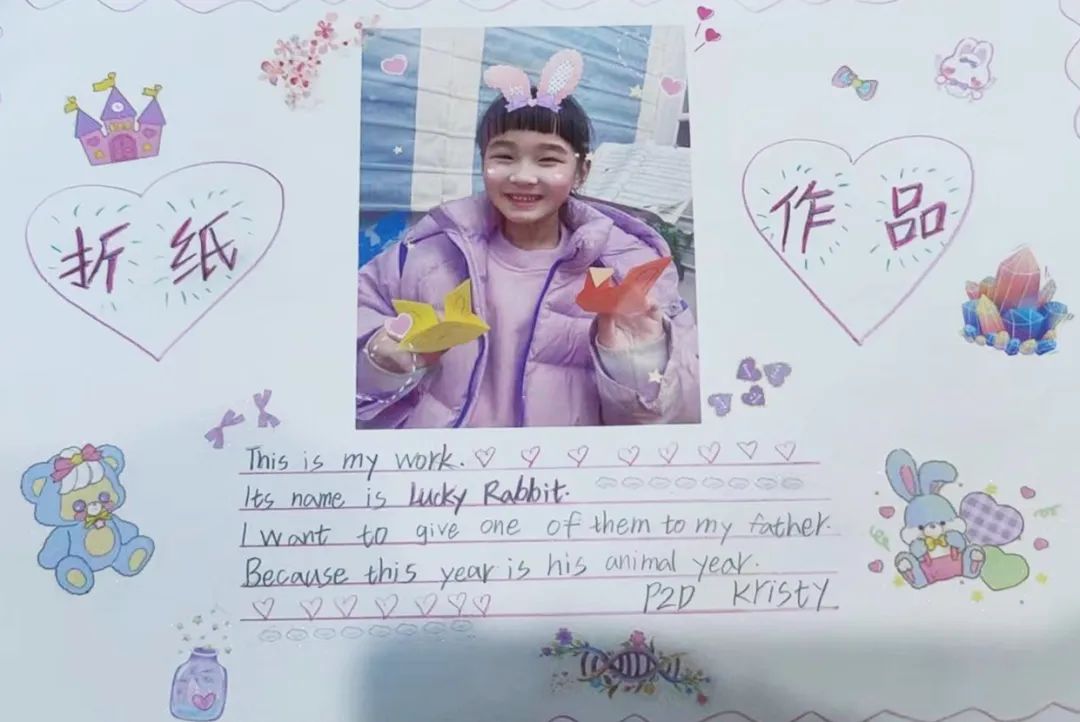 折纸
作品
This is my work.
Its name is Lucky Rabbit.
I want to give one of them to my father.
Because this year is his animal year.
P2D Kristy